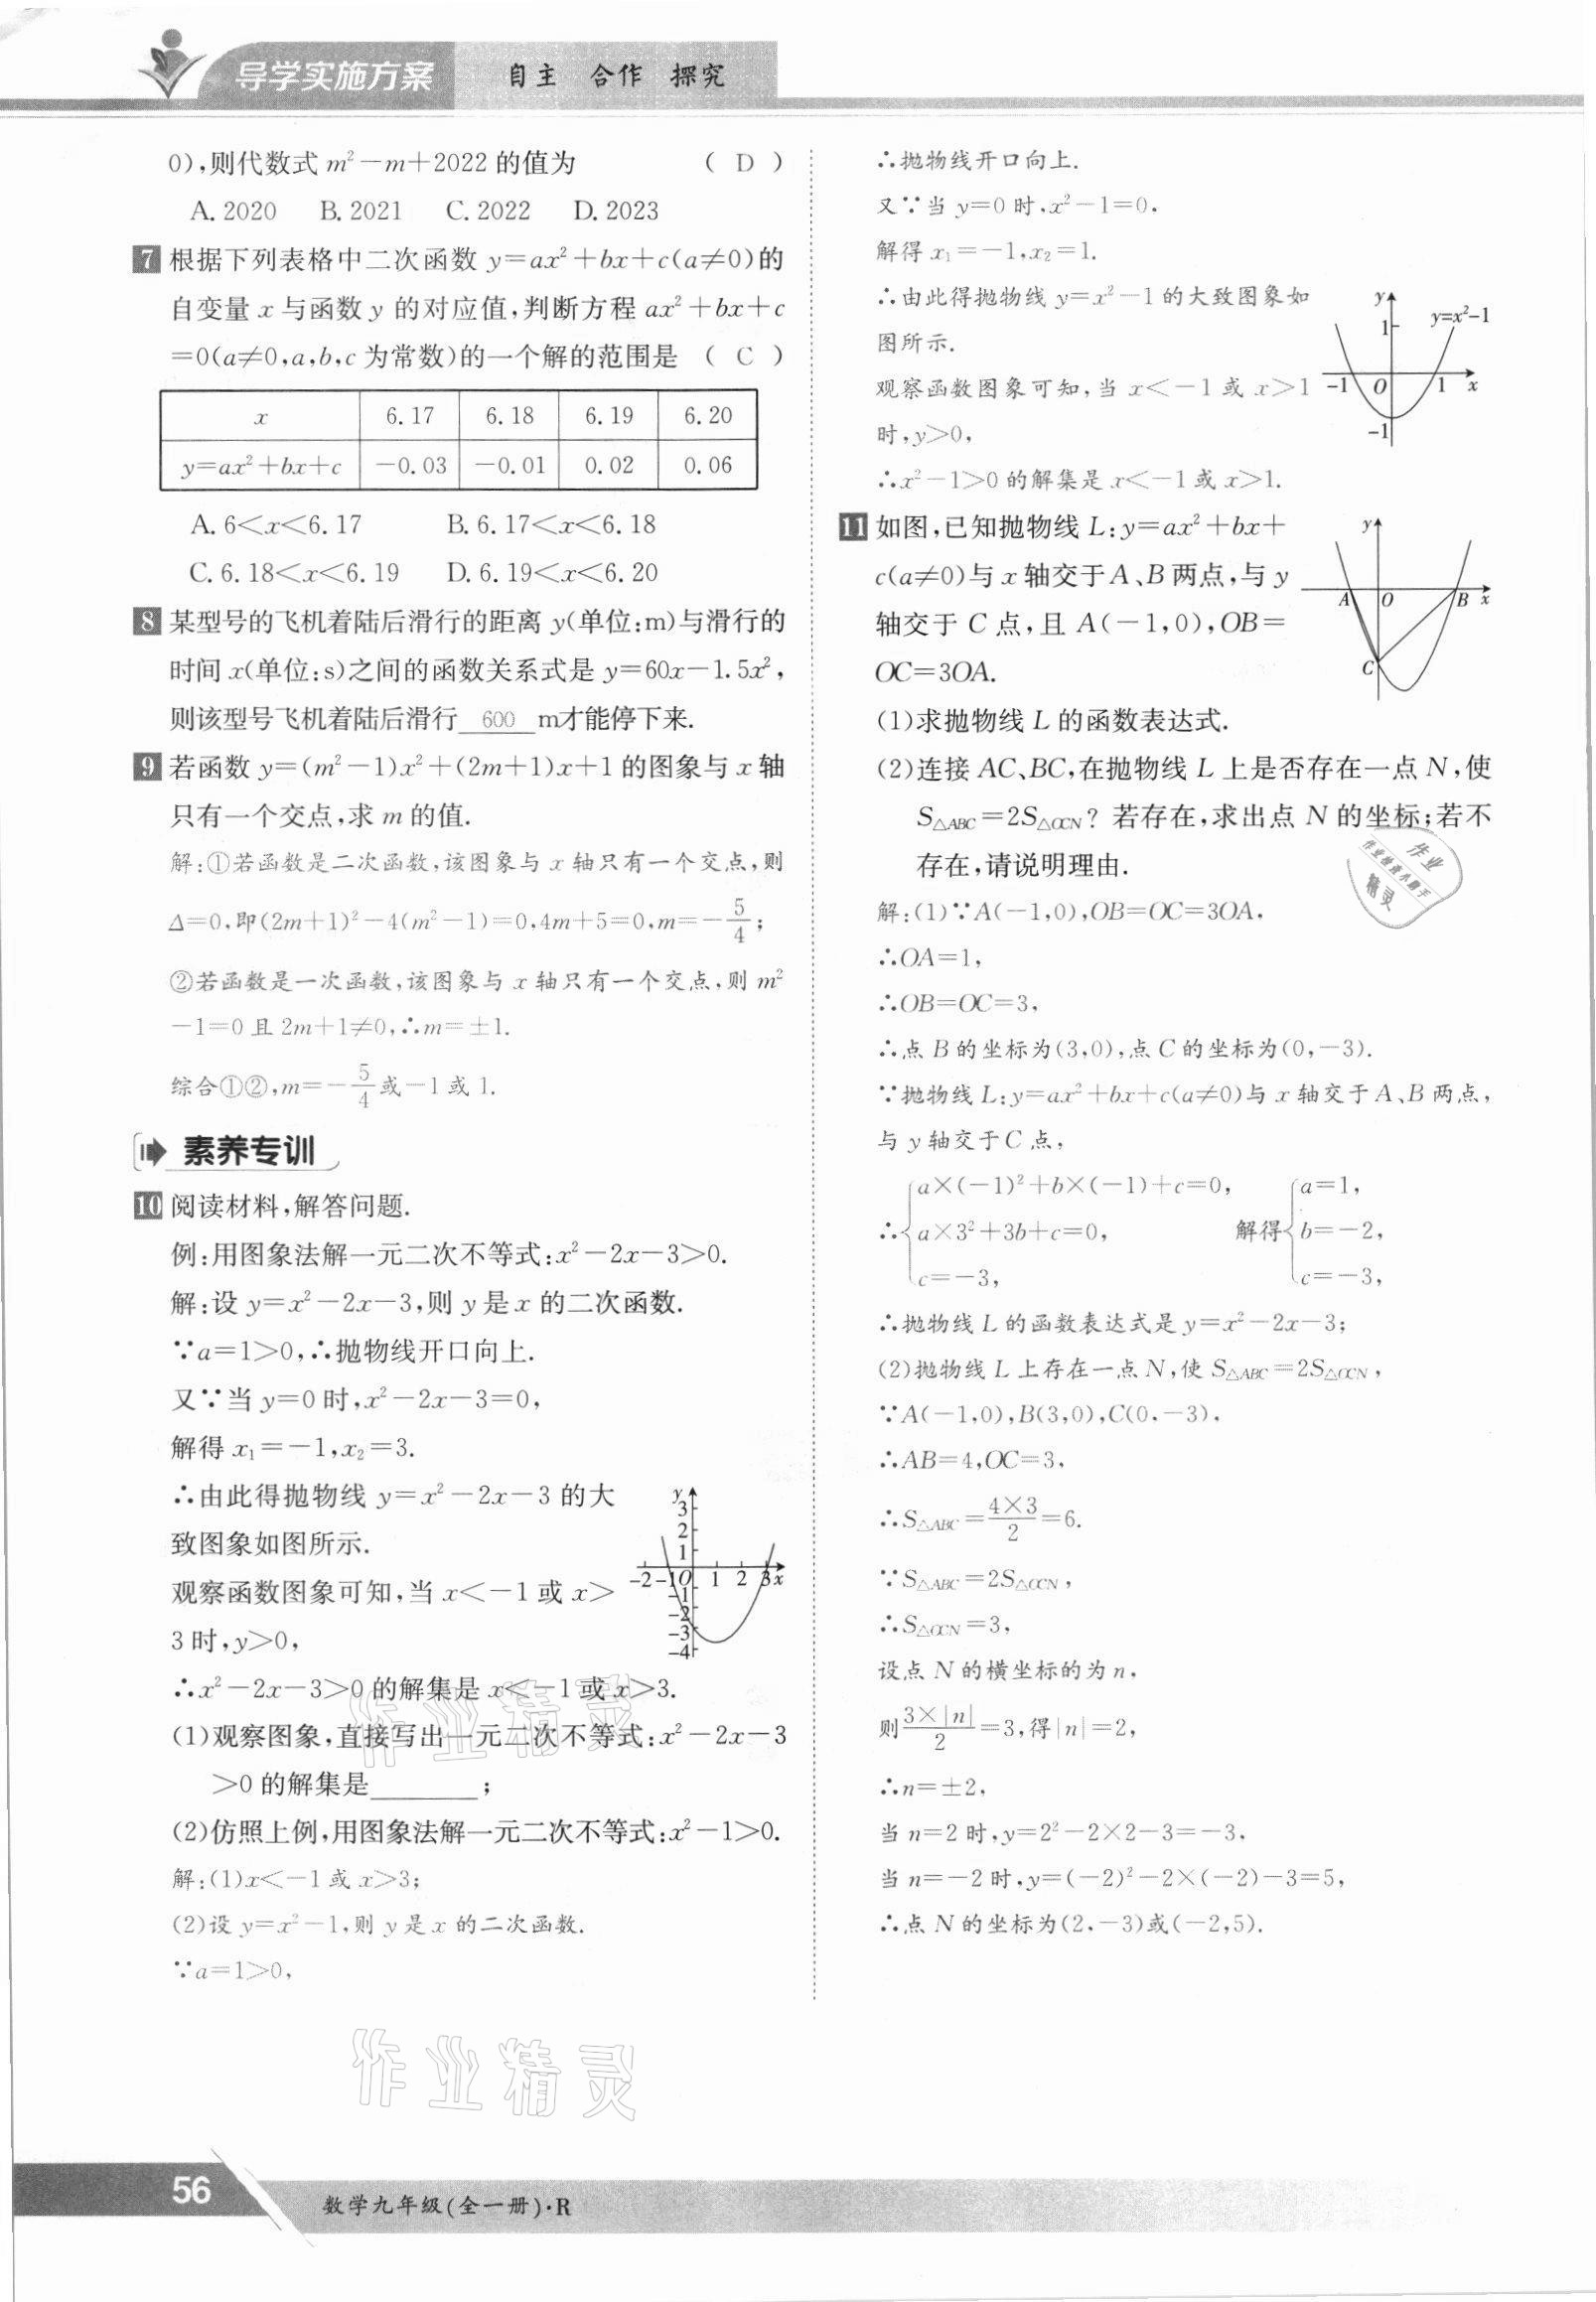 导学实施方案
自主 合作 探究
0),则代数式 m²－m＋2022 的值为 ( D )
A. 2020 B. 2021 C. 2022 D. 2023
7 根据下列表格中二次函数 y=ax²＋bx＋c(a≠0)的
自变量 x 与函数 y 的对应值,判断方程 ax²＋bx＋c
=0(a≠0,a,b,c 为常数)的一个解的范围是 ( C )
x 6.17 6.18 6.19 6.20
y=ax²＋bx＋c －0.03 －0.01 0.02 0.06
A. 6<x<6.17 B. 6.17<x<6.18
C. 6.18<x<6.19 D. 6.19<x<6.20
8 某型号的飞机着陆后滑行的距离 y(单位:m)与滑行的
时间 x(单位:s)之间的函数关系式是 y=60x－1.5x²,
则该型号飞机着陆后滑行 600 m才能停下来.
9 若函数 y=(m²－1)x²＋(2m＋1)x＋1 的图象与 x 轴
只有一个交点,求 m 的值.
解:①若函数是二次函数,该图象与 x 轴只有一个交点,则
Δ=0,即(2m＋1)²－4(m²－1)=0,4m＋5=0,m=－5/4;
②若函数是一次函数,该图象与 x 轴只有一个交点,则 m²
－1=0 且 2m＋1≠0,∴m=±1.
综合①②,m=－5/4或－1 或 1.
素养专训
10 阅读材料,解答问题.
例:用图象法解一元二次不等式:x²－2x－3>0.
解:设 y=x²－2x－3,则 y 是 x 的二次函数.
∵a=1>0,∴抛物线开口向上.
又∵当 y=0 时,x²－2x－3=0,
解得 x₁=－1,x₂=3.
∴由此得抛物线 y=x²－2x－3 的大
致图象如图所示.
观察函数图象可知,当 x<－1 或 x>
3 时,y>0,
y
3
2
1
-2 -1 O 1 2 3 x
-1
-2
-3
-4
∴x²－2x－3>0 的解集是 x<－1 或 x>3.
(1)观察图象,直接写出一元二次不等式:x²－2x－3
>0 的解集是________;
(2)仿照上例,用图象法解一元二次不等式:x²－1>0.
解:(1)x<－1 或 x>3;
(2)设 y=x²－1,则 y 是 x 的二次函数.
∵a=1>0,
∴抛物线开口向上.
又∵当 y=0 时,x²－1=0,
解得 x₁=－1,x₂=1.
∴由此得抛物线 y=x²－1 的大致图象如
图所示.
观察函数图象可知,当 x<－1 或 x>1
时,y>0,
∴x²－1>0 的解集是 x<－1 或 x>1.
y
1
y=x²-1
-1 O 1 x
-1
11 如图,已知抛物线 L:y=ax²＋bx＋
c(a≠0)与 x 轴交于A、B 两点,与 y
轴交于 C 点,且 A(－1,0),OB=
OC=3OA.
y
A O B x
C
(1)求抛物线 L 的函数表达式.
(2)连接 AC、BC,在抛物线 L 上是否存在一点 N,使
S△ABC=2S△OCN? 若存在,求出点 N 的坐标;若不
存在,请说明理由.
解:(1)∵A(－1,0),OB=OC=3OA,
∴OA=1,
∴OB=OC=3,
∴点 B 的坐标为(3,0),点 C 的坐标为(0,－3).
∵抛物线 L:y=ax²＋bx＋c(a≠0)与 x 轴交于 A、B 两点,
与 y 轴交于 C 点,
a×(－1)²＋b×(－1)＋c=0, a=1,
∴ a×3²＋3b＋c=0, 解得 b=－2,
c=－3, c=－3,
∴抛物线 L 的函数表达式是 y=x²－2x－3;
(2)抛物线 L 上存在一点 N,使 S△ABC=2S△OCN,
∵A(－1,0),B(3,0),C(0,－3),
∴AB=4,OC=3,
∴S△ABC=4×3/2=6.
∵S△ABC=2S△OCN,
∴S△OCN=3,
设点 N 的横坐标的为 n,
则3×|n|/2=3,得|n|=2,
∴n=±2,
当 n=2 时,y=2²－2×2－3=－3,
当 n=－2 时,y=(－2)²－2×(－2)－3=5,
∴点 N 的坐标为(2,－3)或(－2,5).
作业
作业检查小助手
精灵
作业精灵
作业精灵
56
数学九年级(全一册)·R